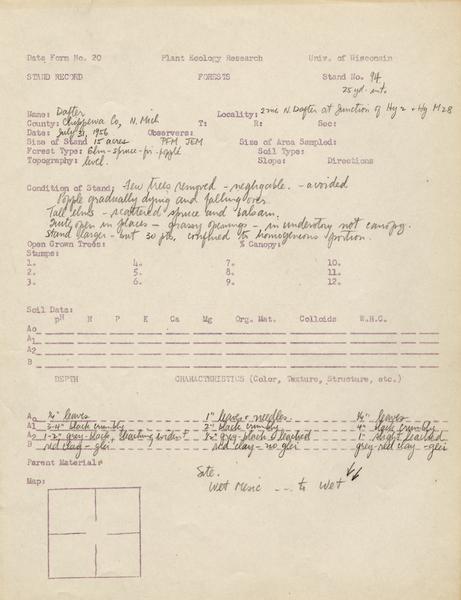 Data Form No. 20 Plant Ecology Research Univ. of Wisconsin
STAND RECORD FORESTS Stand No. 94
25 yd. int.
Name: Dafter Locality: 2 mi N. Dafter at Junction of Hy 2 + Hy M 28
County: Chippewa Co, N. Mich T: R: Sec:
Date: July 31, 1956 Observers:
Size of Stand 15 acres PFM JEM Size of Area Sampled:
Forest Type: Elm-spruce-fir-popple Soil Type:
Topography: level. Slope: Directions
Condition of Stand: Few trees removed - negligeable. - avoided
Popple gradually dying and falling over.
Tall elms - scattered spruce and balsam.
Quite open in places - grassy openings - in understory not canopy.
Stand larger - but 30 pts. confined to homogenious portion.
Open Grown Trees: % Canopy:
Stumps:
1. 4. 7. 10.
2. 5. 8. 11.
3. 6. 9. 12.
Soil Data:
pH N P K Ca Mg Org. Mat. Colloids W.H.C.
Ao
A1
A2
B
DEPTH CHARACTERISTICS (Color, Texture, Structure, etc.)
Ao 3/4" leaves 1" leaves + needles 3/4" leaves
A1 3-4" black crumbly 2" black crumbly 4" black crumbly
A2 1-2" grey-black, leaching evident grey-black + leached 1" slight leached
B red clay - glei red clay - no glei grey-red clay - glei
Parent Material:
Site.
Map: Wet Mesic --- to Wet